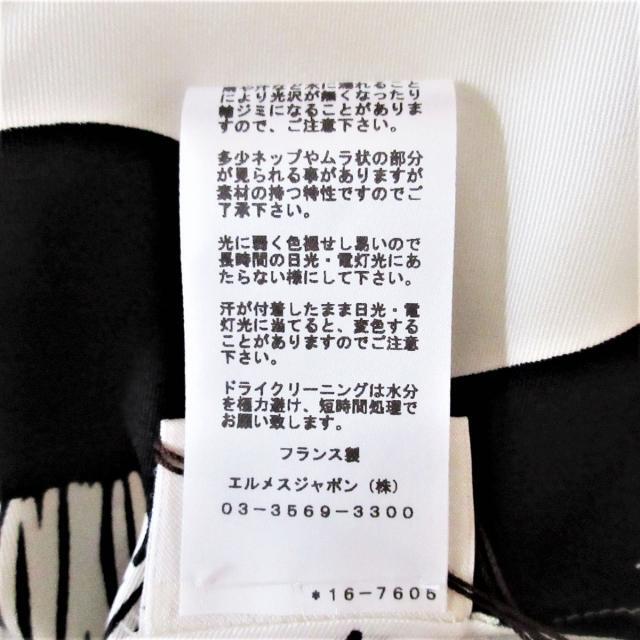 により光沢が無くなったり
輪ジミになることがありま
すので、ご注意下さい。
多少ネップやムラ状の部分
が見られる事がありますが
素材の持つ特性ですのでご
了承下さい。
光に弱く色褪せし易いので
長時間の日光・電灯光にあ
たらない様にして下さい。
汗が付着したまま日光・電
灯光に当てると、変色する
ことがありますのでご注意
下さい。
ドライクリーニングは水分
を極力避け、短時間処理で
お願い致します。
フランス製
エルメスジャポン（株）
03-3569-3300
*16-7605